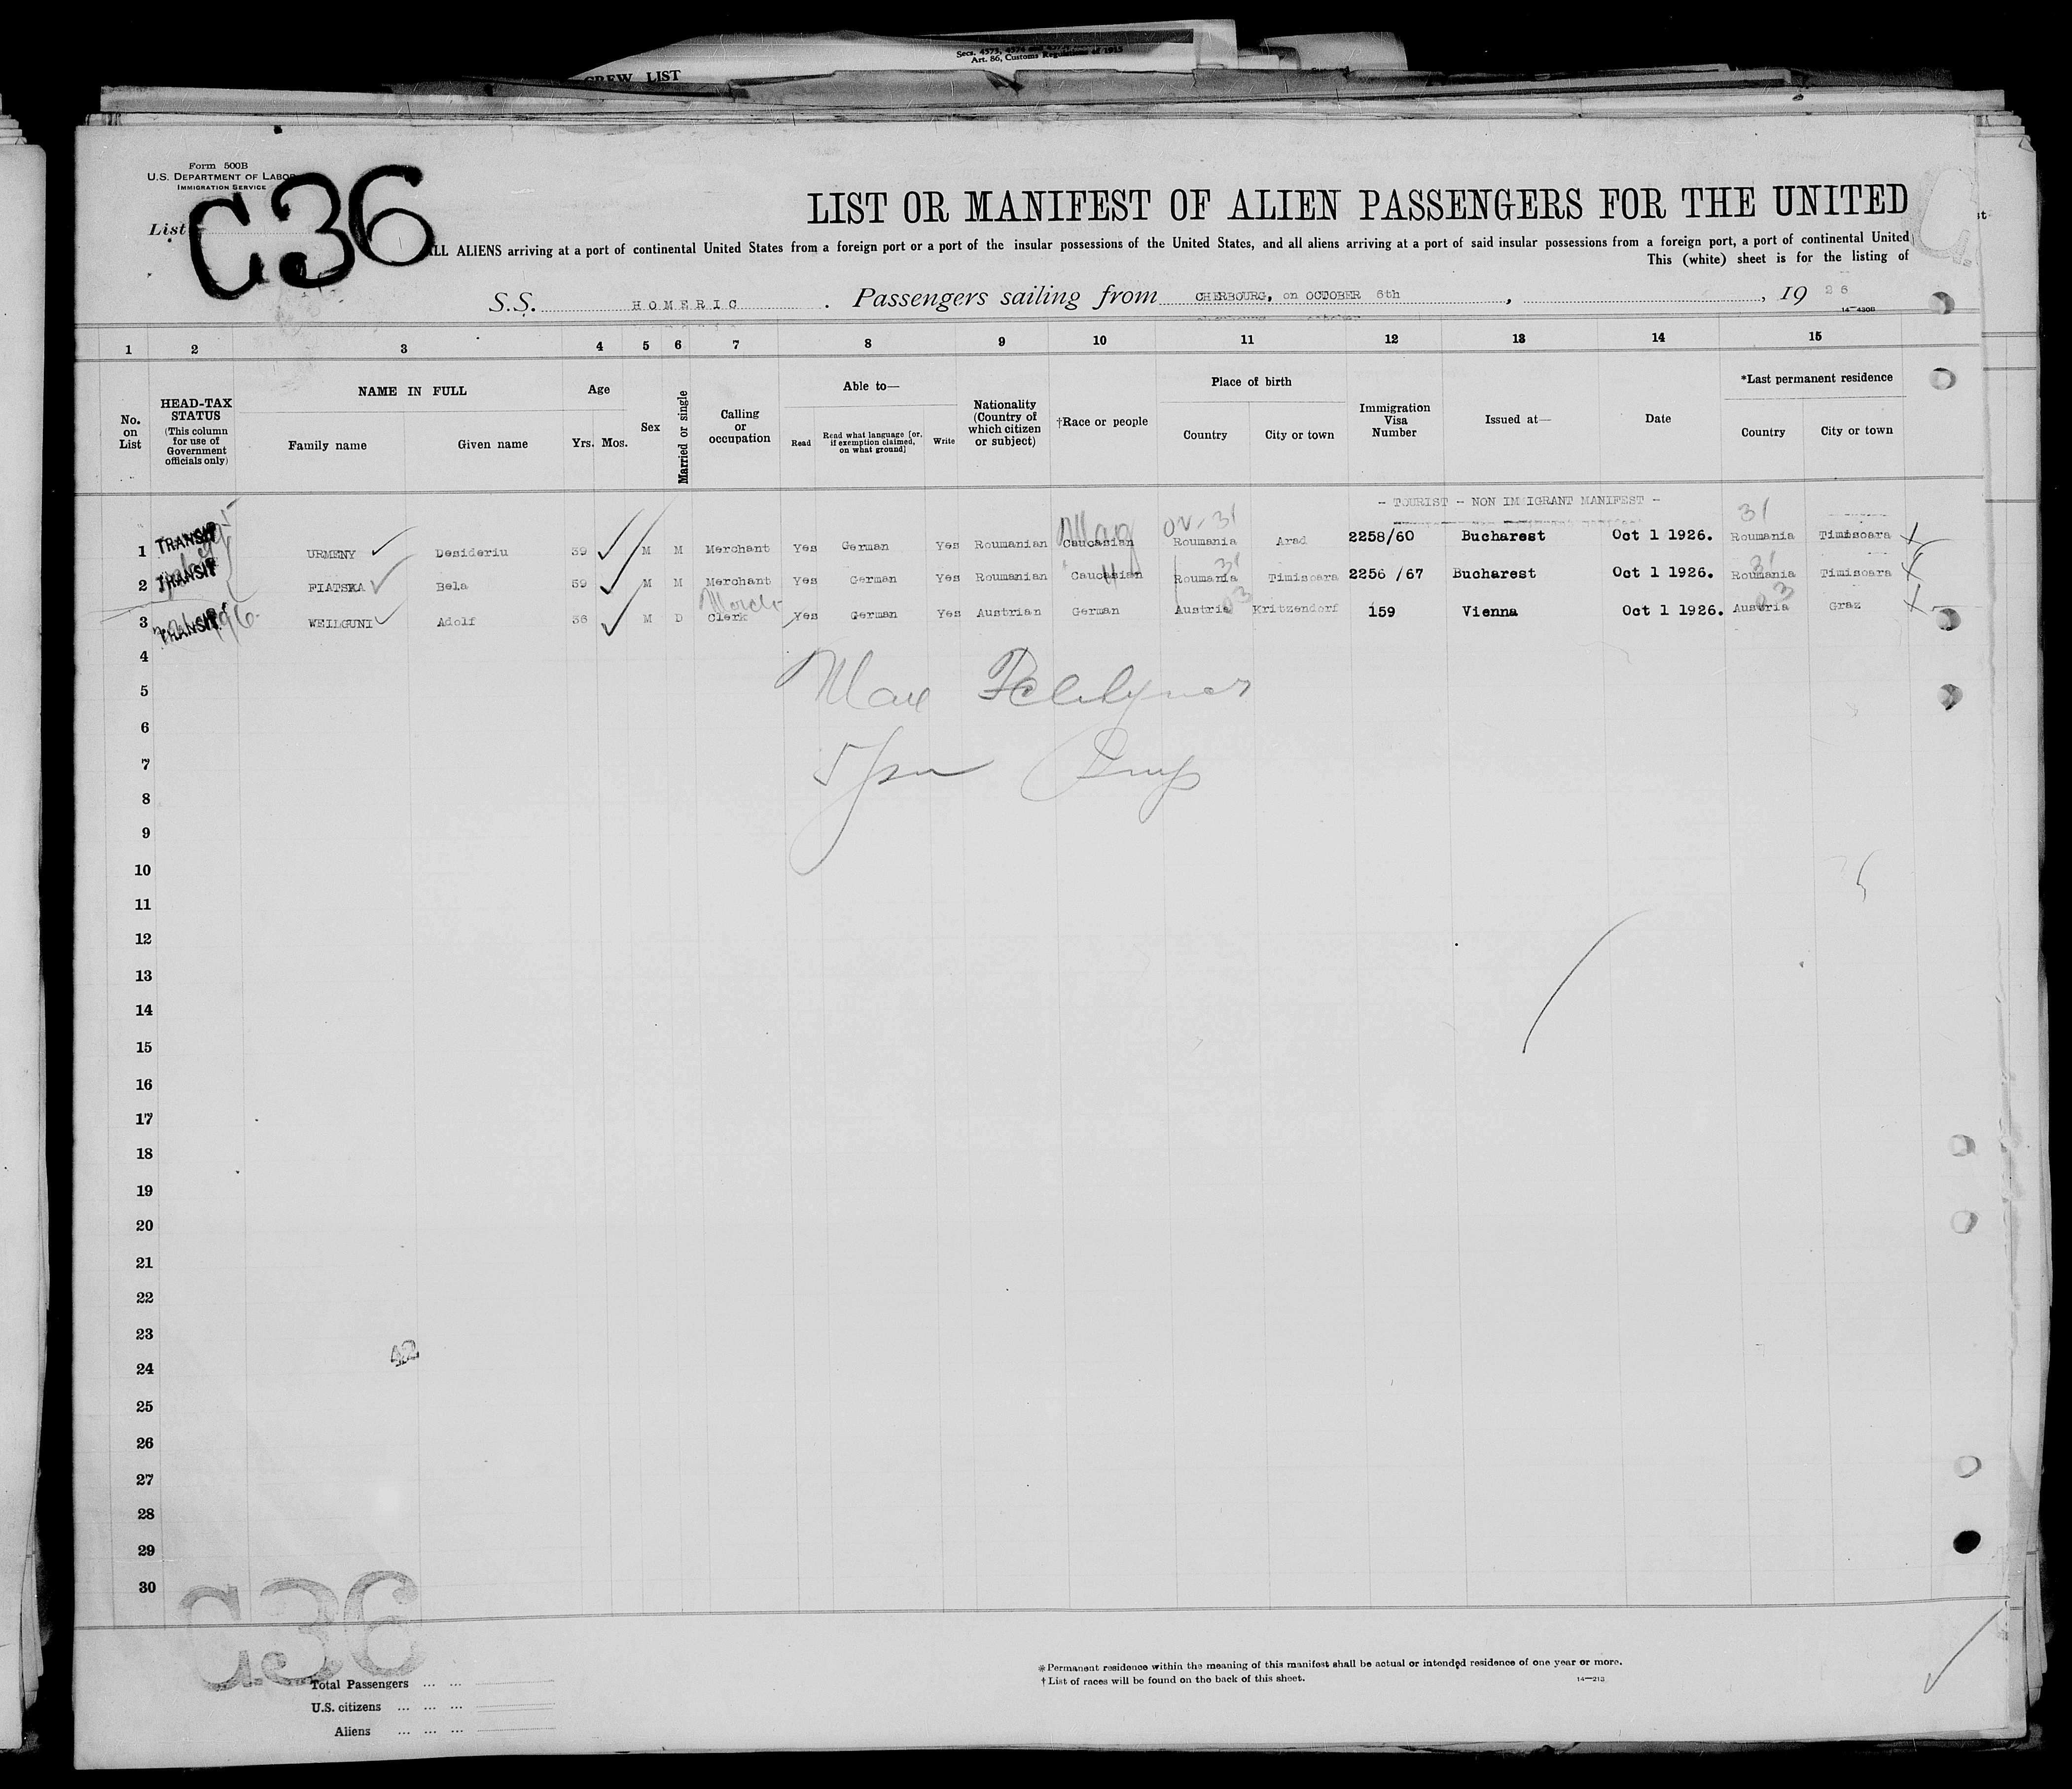 Secs. 4573, 4574 and
Art. 86, Customs Regulations of 1915
CREW LIST
Form 500B
U.S. DEPARTMENT OF LABOR
IMMIGRATION SERVICE
List
C36
LIST OR MANIFEST OF ALIEN PASSENGERS FOR THE UNITED
ALL ALIENS arriving at a port of continental United States from a foreign port or a port of the insular possessions of the United States, and all aliens arriving at a port of said insular possessions from a foreign port, a port of continental United
This (white) sheet is for the listing of
S.S. HOMERIC . Passengers sailing from CHERBOURG, on OCTOBER 6th , , 19 26
14—430B
1 2 3 4 5 6 7 8 9 10 11 12 13 14 15
No. on List
HEAD-TAX STATUS (This column for use of Government officials only)
NAME IN FULL
Family name Given name
Age
Yrs. Mos.
Sex
Married or single
Calling or occupation
Able to—
Read Read what language [or, if exemption claimed, on what ground] Write
Nationality (Country of which citizen or subject)
†Race or people
Place of birth
Country City or town
Immigration Visa Number
Issued at—
Date
*Last permanent residence
Country City or town
- TOURIST - NON IMMIGRANT MANIFEST -
Mag 31 31
1 TRANSIT URMENY Desideriu 39 M M Merchant Yes German Yes Roumanian Caucasian Roumania Arad 2258/60 Bucharest Oct 1 1926. Roumania Timisoara
31 31
2 TRANSIT PIATSKA Bela 59 M M Merchant Yes German Yes Roumanian Caucasian Roumania Timisoara 2256 /67 Bucharest Oct 1 1926. Roumania Timisoara
03 03
3 TRANSIT WEILGUNI Adolf 36 M D Clerk Yes German Yes Austrian German Austria Kritzendorf 159 Vienna Oct 1 1926. Austria Graz
4
Max
5
6
7
8
9
10
11
12
13
14
15
16
17
18
19
20
21
22
23
42
24
25
26
27
28
29
30
C36
*Permanent residence within the meaning of this manifest shall be actual or intended residence of one year or more.
†List of races will be found on the back of this sheet.
14—213
Total Passengers ... ...
U.S. citizens ... ... ...
Aliens ... ... ...